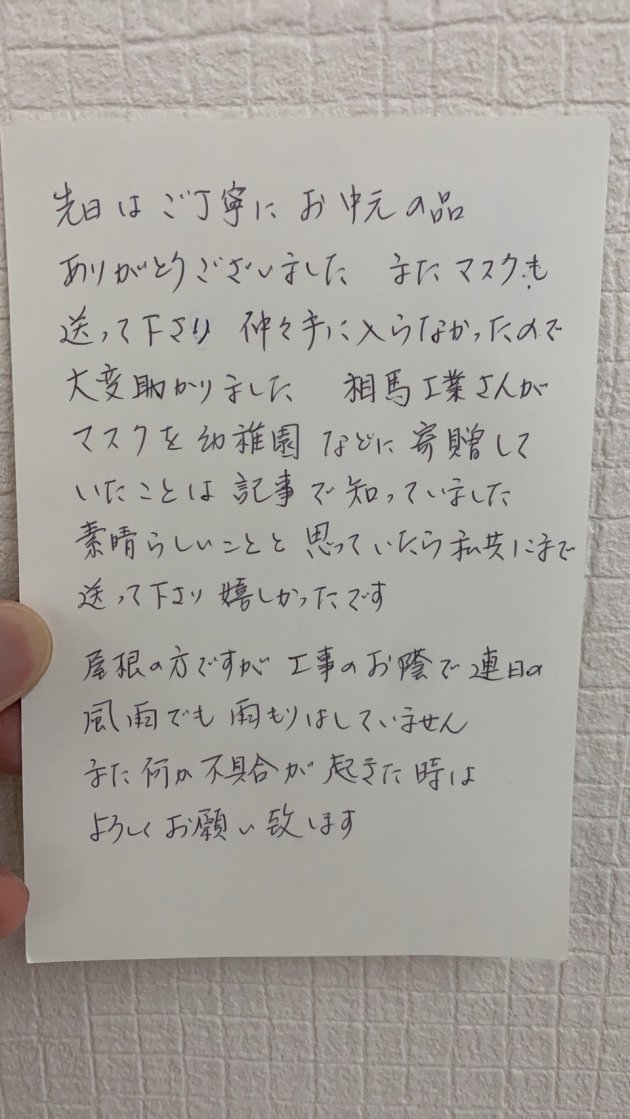 先日は ご丁寧に お中元の品
ありがとうございました またマスクも
送って下さり 仲々手に入らなかったので
大変助かりました 相馬工業さんが
マスクを幼稚園などに寄贈して
いたことは記事で知っていました
素晴らしいことと思っていたら私共にまで
送って下さり嬉しかったです
屋根の方ですが工事のお陰で連日の
風雨でも雨もりはしていません
また何か不具合が起きた時は
よろしくお願い致します